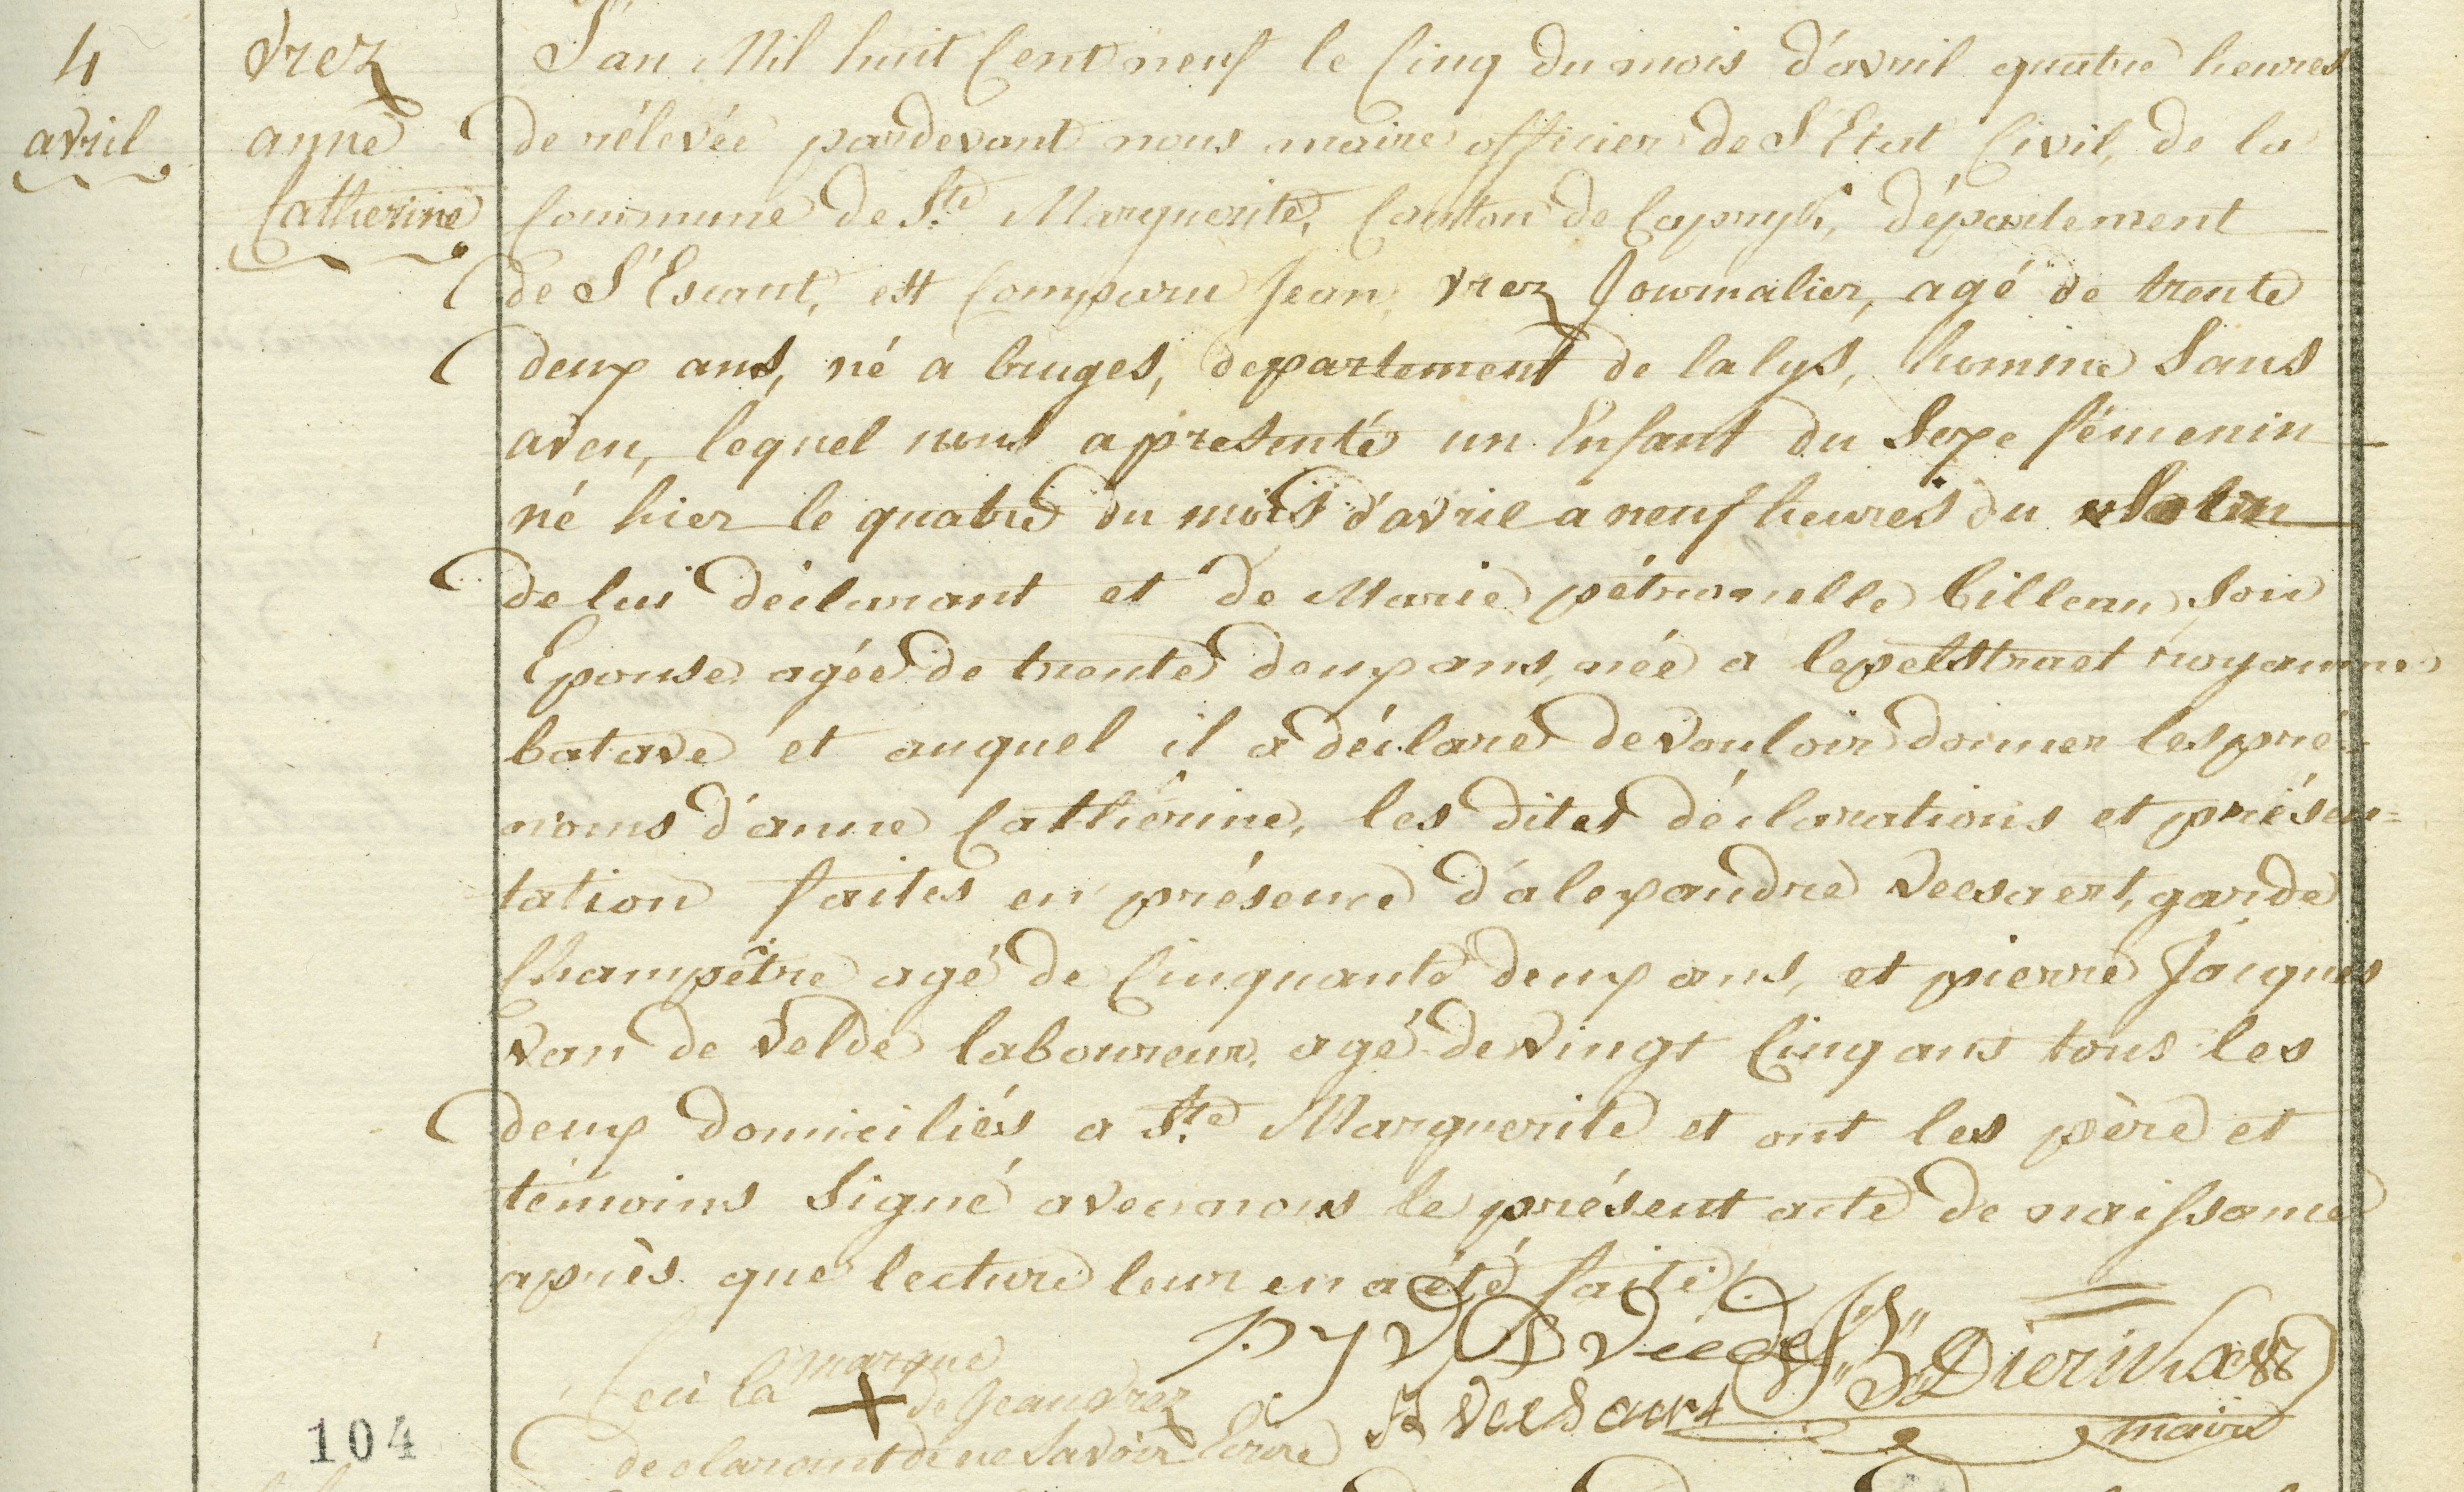 4
avril
vrez
anne
Catherine
L'an Mil huit Cent neuf le Cinq du mois d'avril quatre heures
de rélevée pardevant nous maire officier de L'Etat Civil, de la
Commune de Ste Marguerite, Canton de Capryk, département
de L'Escaut, est Comparu Jean vrez Journalier, agé de trente
deux ans, né a bruges, departement de lalys, homme Sans
aveu, lequel nous a présenté un Enfant du Sexe fémenin
né hier le quatre du mois d'avril a neuf heures du
de lui déclarant et de Marie pétronelle Cilleau, Son
Epouse agée de trente deux ans, née a lepelstraet royaume
batave et auquel il a déclaré de vouloir donner les pré-
noms d'anne Cathérine, les dites déclarations et présen=
tation faites en présence d'alexandre veesaert, garde
Champêtre agé de Cinquante deux ans, et pierre Jacques
van de velde laboureur agé de vingt Cinq ans tous les
deux domiciliés a Ste Marguerite et ont les père et
témoins Signé avec nous le présent acte de naissance
après que lecture leur en a été faite.
Ceci la marque
+ de Jean vrez
declarant de ne Savoir Ecrire
A veesaert
maire
104